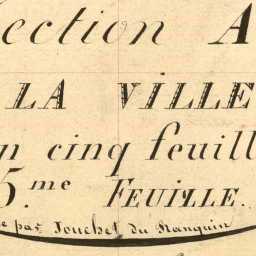 ection A
LA VILLE
n cinq feuill
5.me FEUILLE.
e par Touchet du Ranquin